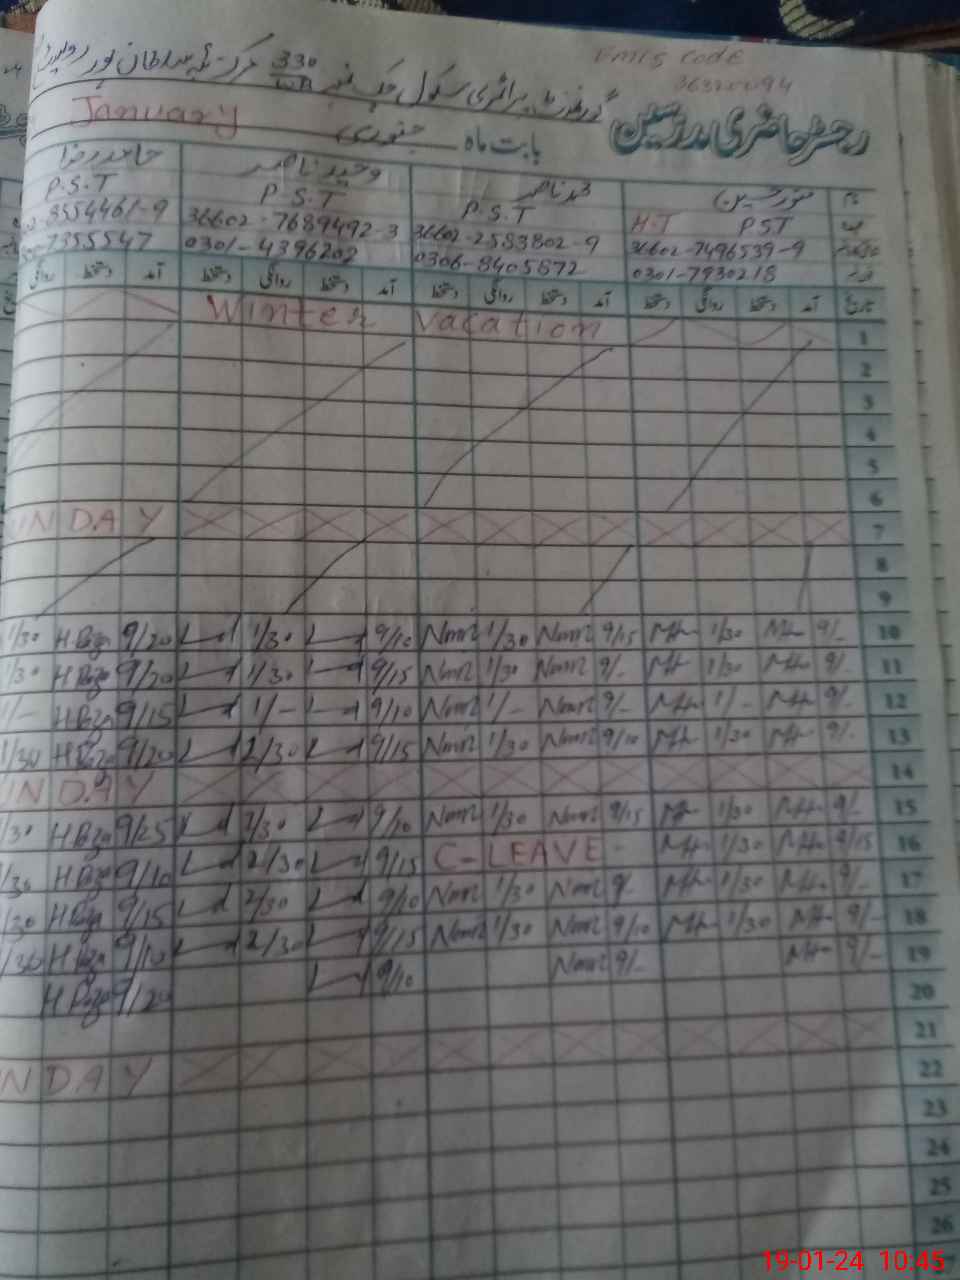 EMIS Code
36320094
گورنمنٹ پرائمری سکول چک نمبر 330/WB مرکز ٹبہ سلطان پور
رجسٹر حاضری مدرسین بابت ماہ جنوری January
نام منور حسین محمد ناصر وحید ناصر حامد رضا
H.T PST P.S.T P.S.T P.S.T
36602-7496539-9 36602-2583802-9 36602-7689492-3 8554461-9
0301-7930218 0306-8405872 0301-4396202 7355547
تاریخ آمد دستخط روانگی دستخط آمد دستخط روانگی دستخط آمد دستخط روانگی دستخط آمد دستخط روانگی
1 Winter vacation
2
3
4
5
6
7 UNDAY
8
9
1/30 H Raza 9/20 1/30 9/10 Nasir 1/30 Nasir 9/15 MH 1/30 MH 9/- 10
1/30 H Raza 9/20 1/30 9/15 Nasir 1/30 Nasir 9/- MH 1/30 MH 9/- 11
1/- H Raza 9/15 1/- 9/10 Nasir 1/- Nasir 9/- MH 1/- MH 9/- 12
1/30 H Raza 9/20 2/30 9/15 Nasir 1/30 Nasir 9/10 MH 1/30 MH 9/- 13
UNDAY 14
1/30 H Raza 9/25 1/30 9/10 Nasir 1/30 Nasir 9/15 MH 1/30 MH 9/- 15
1/30 H Raza 9/10 2/30 9/15 C-LEAVE MH 1/30 MH 9/15 16
1/30 H Raza 9/15 2/30 9/10 Nasir 1/30 Nasir 9/- MH 1/30 MH 9/- 17
1/30 H Raza 9/10 2/30 9/15 Nasir 1/30 Nasir 9/10 MH 1/30 MH 9/- 18
H Raza 9/20 9/10 Nasir 9/- MH 9/- 19
20
UNDAY 21
22
23
24
25
26
19-01-24 10:45